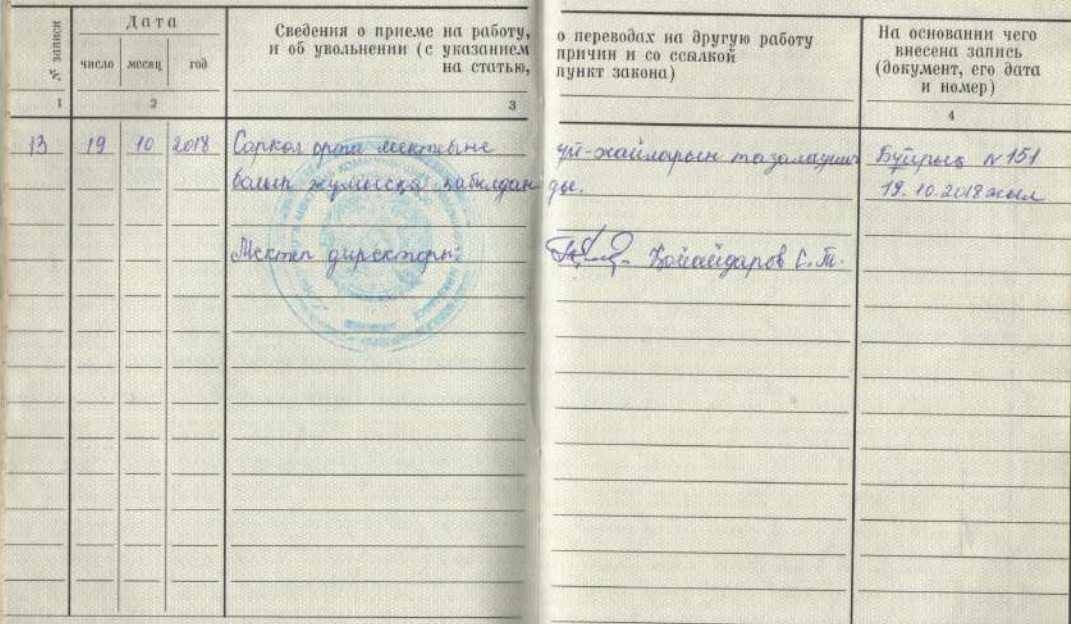 № записи
Дата
число месяц год
Сведения о приеме на работу, о переводах на другую работу
и об увольнении (с указанием причин и со ссылкой
на статью, пункт закона)
На основании чего
внесена запись
(документ, его дата
и номер)
1 2 3 4
13 19 10 2018 Саркол орта мектебіне үй-жайларын тазалаушы Бұйрық №151
болып жұмысқа қабылданды. 19.10.2018 жыл
Мектеп директоры: С.Т.